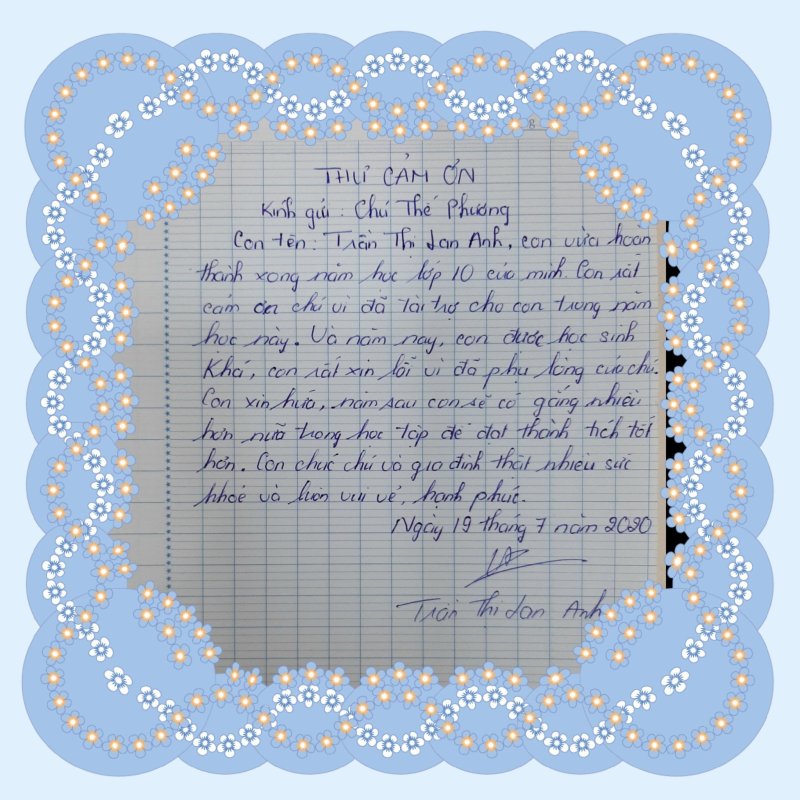 THƯ CẢM ƠN
Kính gửi : Chú Thế Phương
Con tên : Trần Thị Lan Anh, con vừa hoàn
thành xong năm học lớp 10 của mình. Con rất
cám ơn chú vì đã tài trợ cho con trong năm
học này. Và năm nay, con được học sinh
Khá, con rất xin lỗi vì đã phụ lòng của chú.
Con xin hứa, năm sau con sẽ cố gắng nhiều
hơn nữa trong học tập để đạt thành tích tốt
hơn. Con chúc chú và gia đình thật nhiều sức
khoẻ và luôn vui vẻ, hạnh phúc.
Ngày 19 tháng 7 năm 2020
Trần Thị Lan Anh